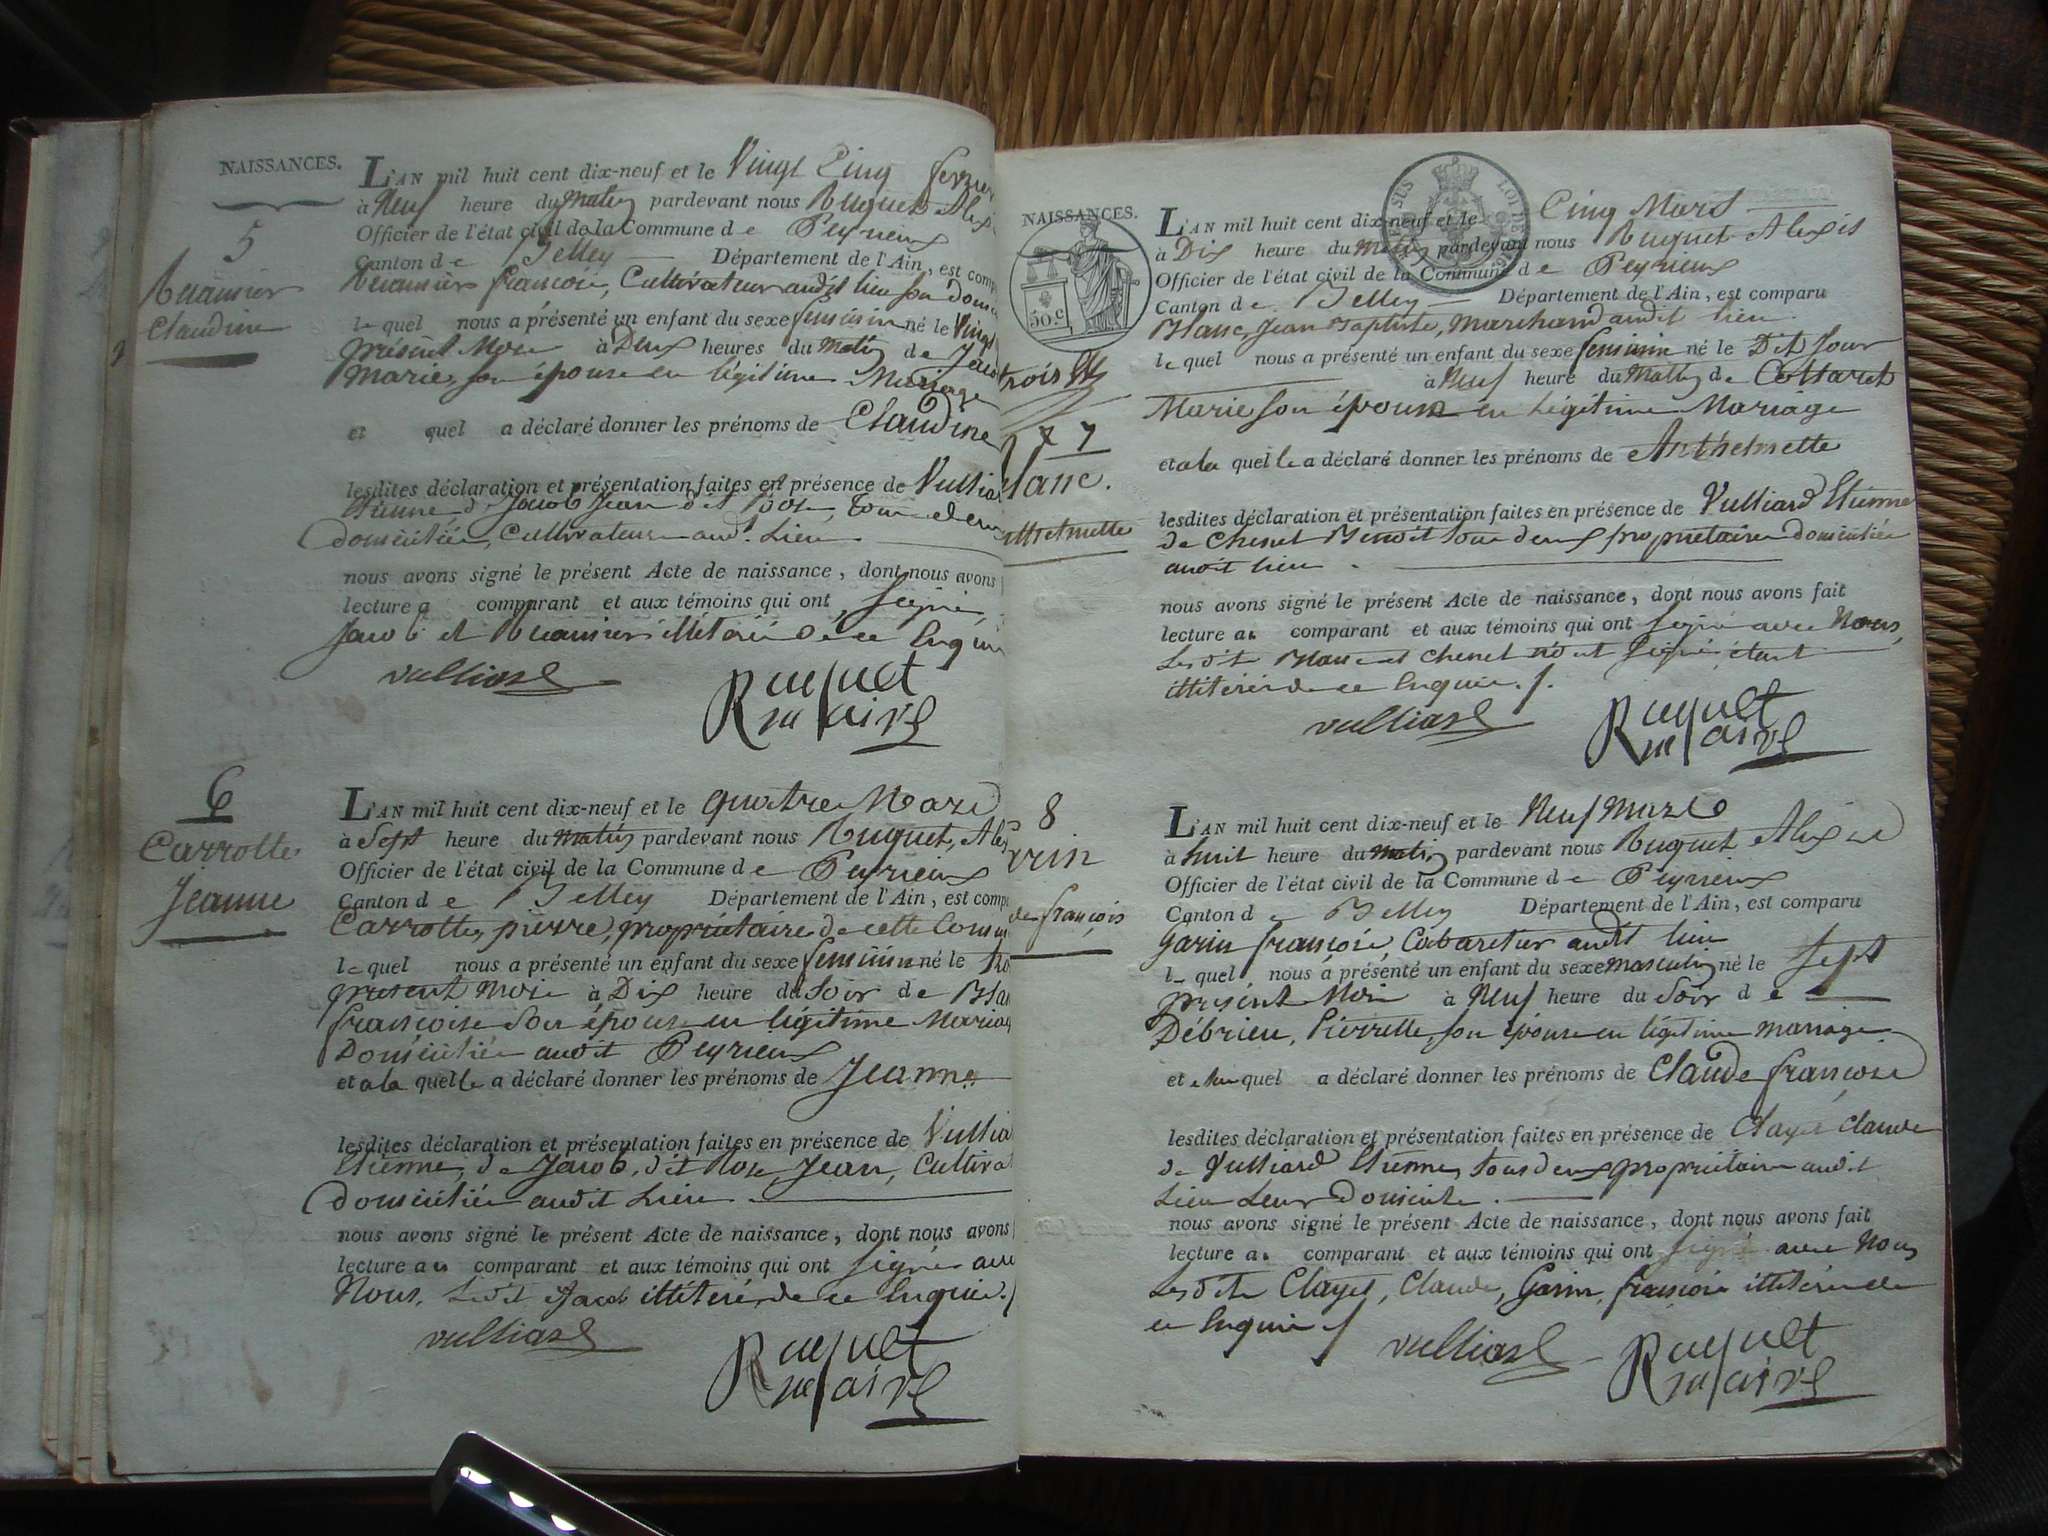 NAISSANCES.
5
Claudine
L'AN mil huit cent dix-neuf et le Vingt Cinq fevrier
à Neuf heure du Matin pardevant nous Ruguet Alexis
Officier de l'état civil de la Commune de Peyrieux
Canton de Belley Département de l'Ain, est comp
françois, Cultivateur audit lieu son domici
lequel nous a présenté un enfant du sexe feminin né le Vingt
présent Mois à Deux heures du Matin de
Marie, son épouse en légitime Mariage
et quel a déclaré donner les prénoms de Claudine
lesdites déclaration et présentation faites en présence de Vulliar
Etienne & Jacob Jean dit Rose, tous deux
domiciliés, Cultivateurs aud. Lieu
nous avons signé le présent Acte de naissance, dont nous avons
lecture a comparant et aux témoins qui ont Signé
Jacob et illitéré de ce Enquis
vulliard
Ruguet
maire
6
Carrotte
Jeanne
L'AN mil huit cent dix-neuf et le quatre Mars
à Sept heure du Matin pardevant nous Ruguet, Alex
Officier de l'état civil de la Commune de Peyrieux
Canton de Belley Département de l'Ain, est comp
Carrotte, pierre, propriétaire de cette Commu
lequel nous a présenté un enfant du sexe feminin né le tro
présent Mois à Dix heure du Soir de Blan
françoise Son épouse en légitime Mariag
Domiciliée audit Peyrieux
et a la quelle a déclaré donner les prénoms de Jeanne
lesdites déclaration et présentation faites en présence de Vullia
Etienne, de Jacob, dit Rose, Jean, Cultivat
domiciliés audit Lieu.
nous avons signé le présent Acte de naissance, dont nous avons
lecture au comparant et aux témoins qui ont signés avec
Nous, Ledit Jacob illitéré, de ce Enquis./
vulliard
Ruguet
maire
NAISSANCES.
50.c
trois
7
lanc.
nthelmette
L'AN mil huit cent dix-neuf et le Cinq Mars
à Dix heure du Matin pardevant nous Ruguet Alexis
Officier de l'état civil de la Commune de Peyrieux
Canton de Belley Département de l'Ain, est comparu
Blanc, Jean Baptiste, Marchand audit lieu
lequel nous a présenté un enfant du sexe feminin né le Dit Jour
à Neuf heure du Matin de Cottaret
Marie son épouse en Légitime Mariage
et a la quelle a déclaré donner les prénoms de Anthelmette
lesdites déclaration et présentation faites en présence de Vulliard Etienne
de Chenet Benoit tous deux propriétaires domiciliés
audit lieu.
nous avons signé le présent Acte de naissance, dont nous avons fait
lecture au comparant et aux témoins qui ont signé avec Nous,
Lesdits Blanc et Chenet n'ont Signé, étant
illitérés de ce Enquis./.
vulliard
Ruguet
maire
8
rin
de françois
L'AN mil huit cent dix-neuf et le Neuf Mars
à huit heure du Matin pardevant nous Ruguet Alexis
Officier de l'état civil de la Commune de Peyrieux
Canton de Belley Département de l'Ain, est comparu
Garin françois, Cabaretier audit lieu
lequel nous a présenté un enfant du sexe masculin né le Sept
présent Mois à Neuf heure du Soir de
Débrieu, Pierrette, son épouse en légitime mariage
et quel a déclaré donner les prénoms de Claude françois
lesdites déclaration et présentation faites en présence de Clayet Claude
de Vulliard Etienne, tous deux propriétaires audit
Lieu Leur Domicile.
nous avons signé le présent Acte de naissance, dont nous avons fait
lecture au comparant et aux témoins qui ont signé avec Nous
Lesdits Clayet, Claude, Garin, françois illitérés de
ce Enquis./
vulliard
Ruguet
maire